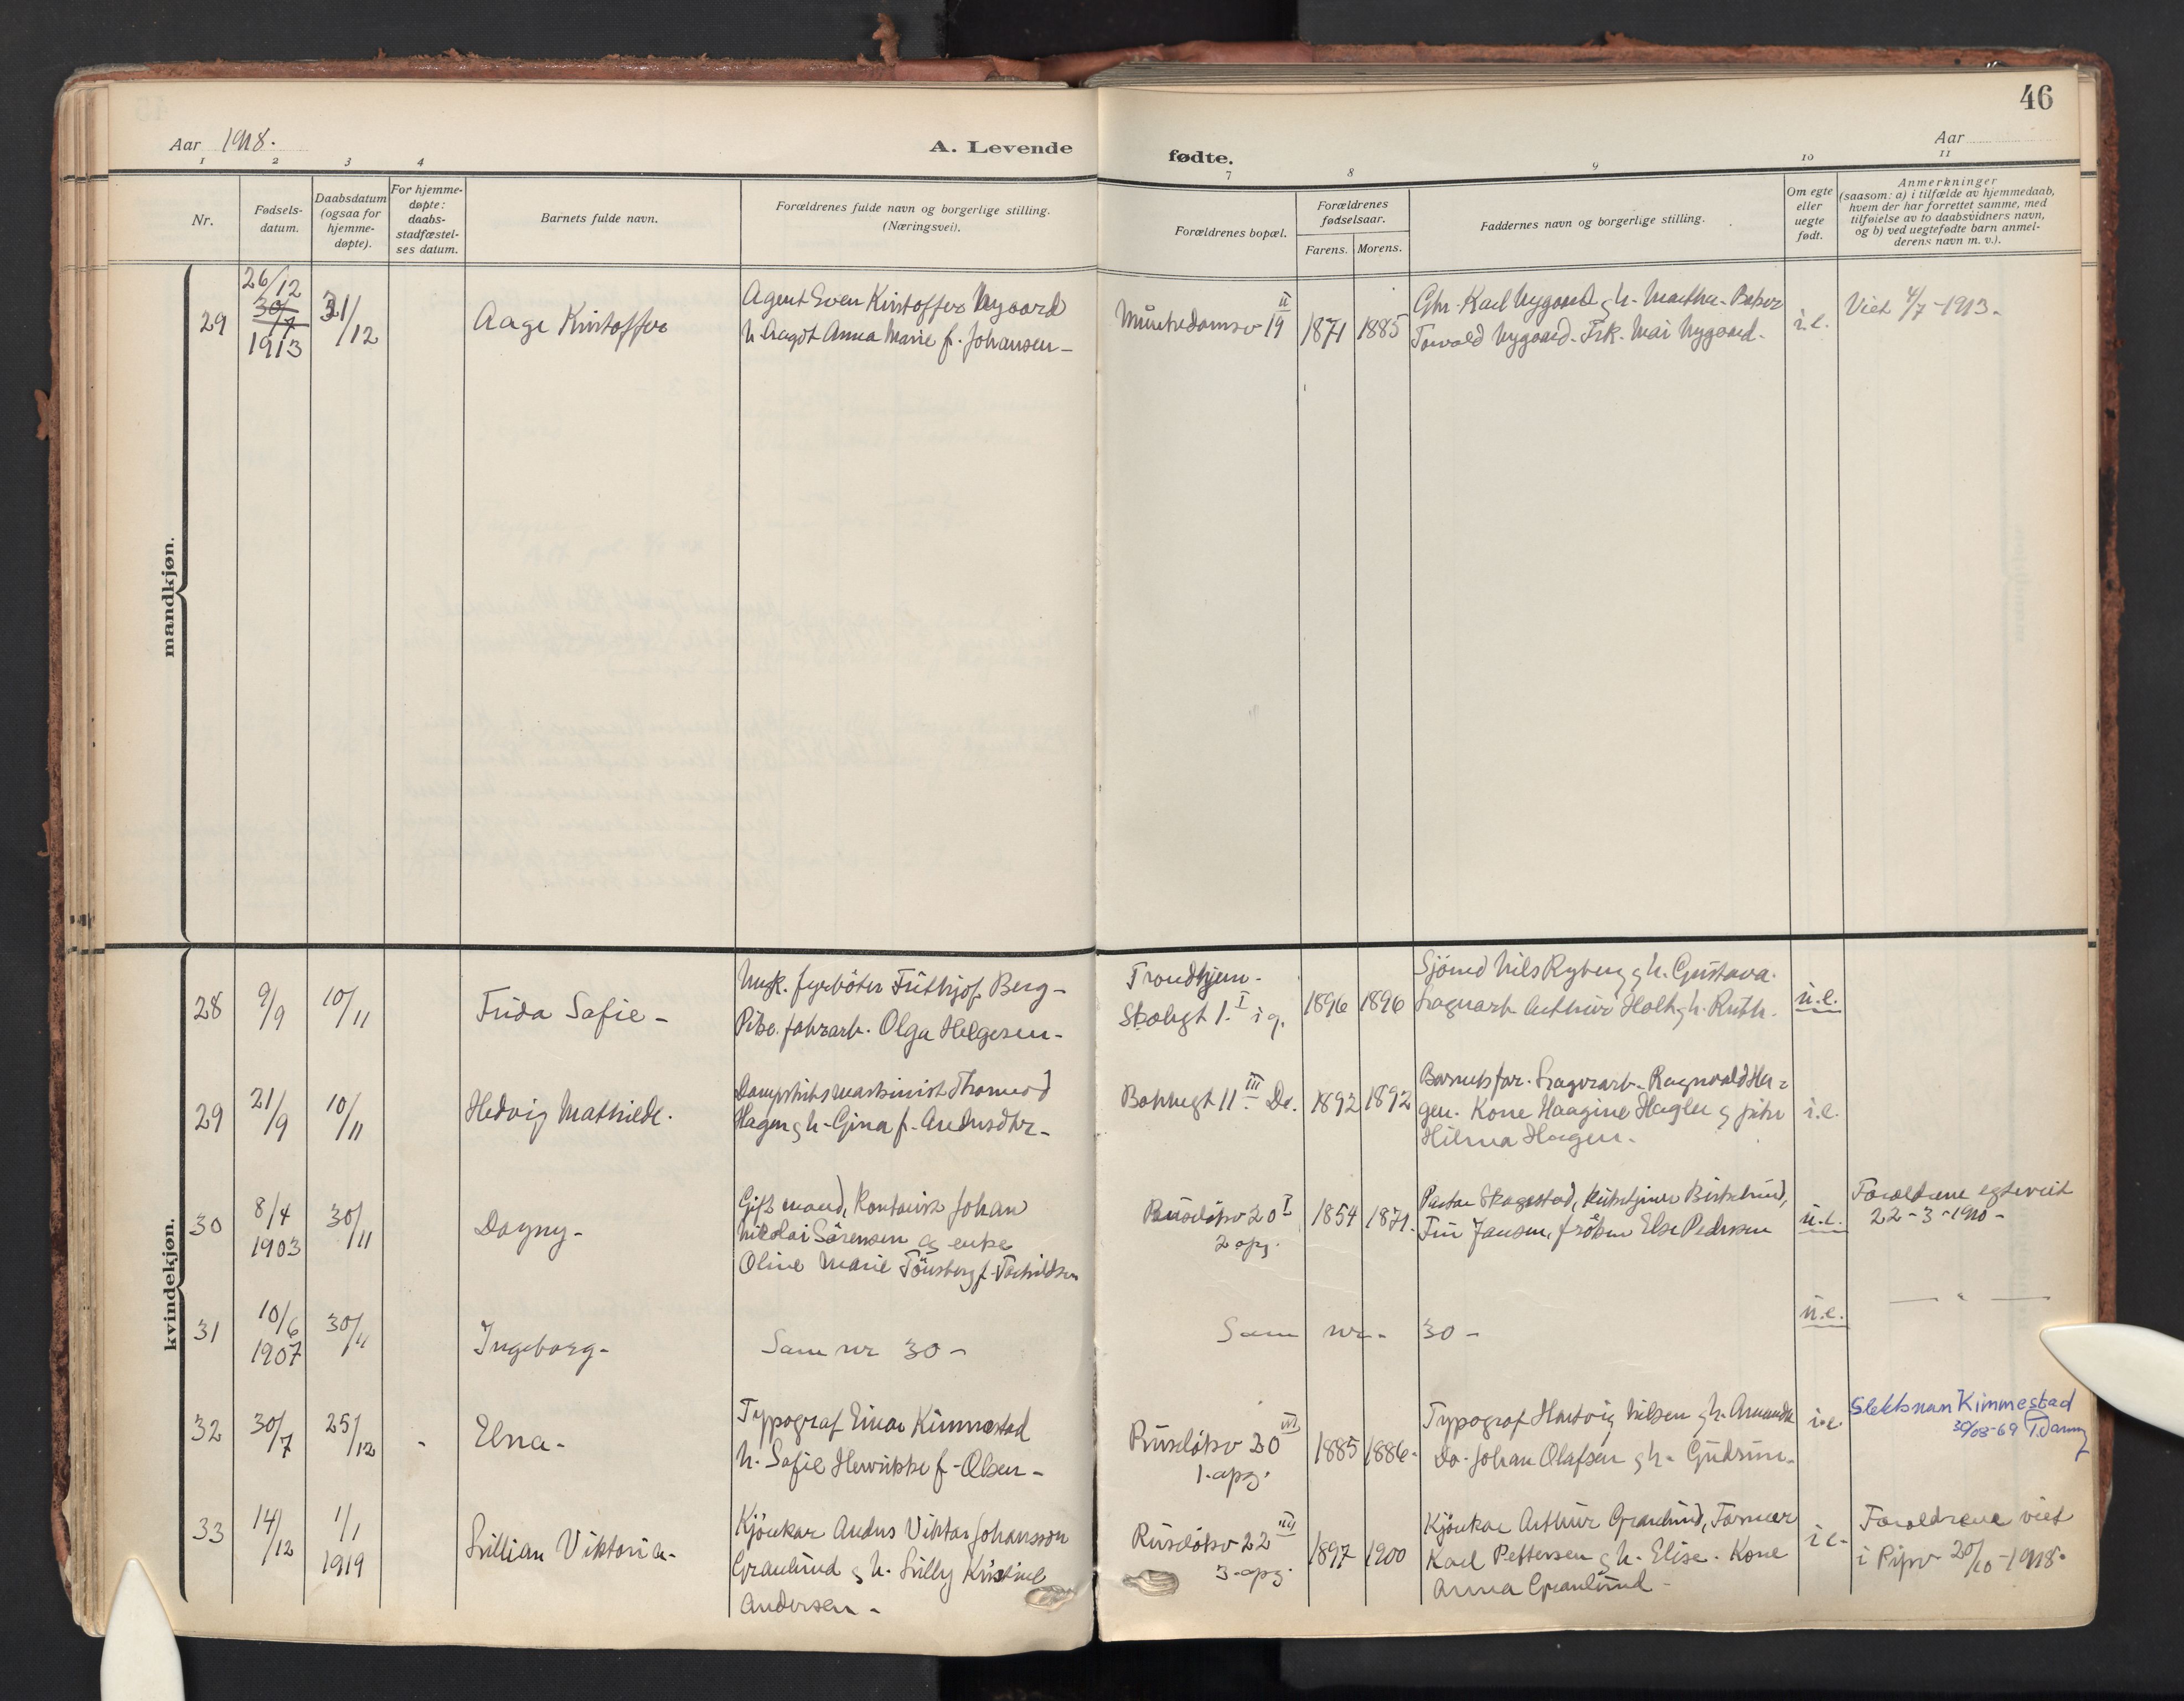 46
Aar 1918.
A. Levende
fødte.
Aar
1 2 3 4 7 8 9 10 11
Nr.
Fødsels-
datum.
Daabsdatum
(ogsaa for
hjemme-
døpte).
For hjemme-
døpte:
daabs-
stadfæstel-
ses datum.
Barnets fulde navn.
Forældrenes fulde navn og borgerlige stilling.
(Næringsvei).
Forældrenes bopæl.
Forældrenes
fødselsaar.
Farens. Morens.
Faddernes navn og borgerlige stilling.
Om egte
eller
uegte
født.
Anmerkninger
(saasom: a) i tilfælde av hjemmedaab,
hvem der har forrettet samme, med
tilføielse av to daabsvidners navn,
og b) ved uegtefødte barn anmel-
derens navn m. v.).
mandkjøn.
29
26/12
30/7
1913
31/12
Aage Kristoffer
Agent Sven Kristoffer Nygaard
h. Anna Marie f. Johansen-
Munkedamsv 19 II
1871 1885
Karl Nygaard g h. Marthe.
Torvald Nygaard. Frk. Mai Nygaard.
i.e.
Viet 4/7-1913.
kvindekjøn.
28
9/9
10/11
Frida Safie-
Ugk. fyrbøter Frithjof Berg-
Pike. fabrarb. Olga Helgesen-
Trondhjem-
1. I i g.
1896 1896
Sjömd Nils Ryberg g h. Gustava.
Lagerarb Arthur Holth g h. Ruth.
u.e.
29
21/9
10/11
Hedvig Mathilde.
Dampskibsmaskinist
Hagen g h. Gina f.
11 III Do.
1892 1892
Barnets far. Lagerarb. Ragnvald Ha-
gen. Kone Haagine g pike
Hilma Hagen.
i.e.
30
8/4
1903
30/11
Dagny-
Gift mand, Kontorist Johan
Nikolai Sørensen og enke
Oline Marie Tönsberg f.
Ruseløkv 20 I
2 opg.
1854 1871.
Pastor Skagestad,
Jansen, frøken Else Pedersen
u.e.
Forældrene egteviet
22-3-1910-
31
10/6
1907
30/11
Ingeborg-
Sam nr 30-
Sam nr. 30-
u.e.
— " —
32
30/7
25/12
-
Elna-
Typograf Einar Kimmestad
h. Safie Henrikke f. Olsen-
Ruseløkv 20 III
1. opg.
1885 1886-
Typograf Hartvig Nilsen g h. Amanda
Do. Johan Olafsen g h. Gudrun-
i.e.
Slektsnavn Kimmestad
30/08-69
33
14/12
1/1
1919
Lillian Viktoria-
Kjørekar Andrus Viktor Johansson
Granlund g h. Lilly Kristine
Andersen-
Ruseløkv 22 III
3. opg.
1897 1900
Kjørekar Arthur Granlund, Former
Karl Pettersen g h. Elise. Kone
Anna Granlund-
i e-
Forældrene viet
i Pipv. 20/10-1918.